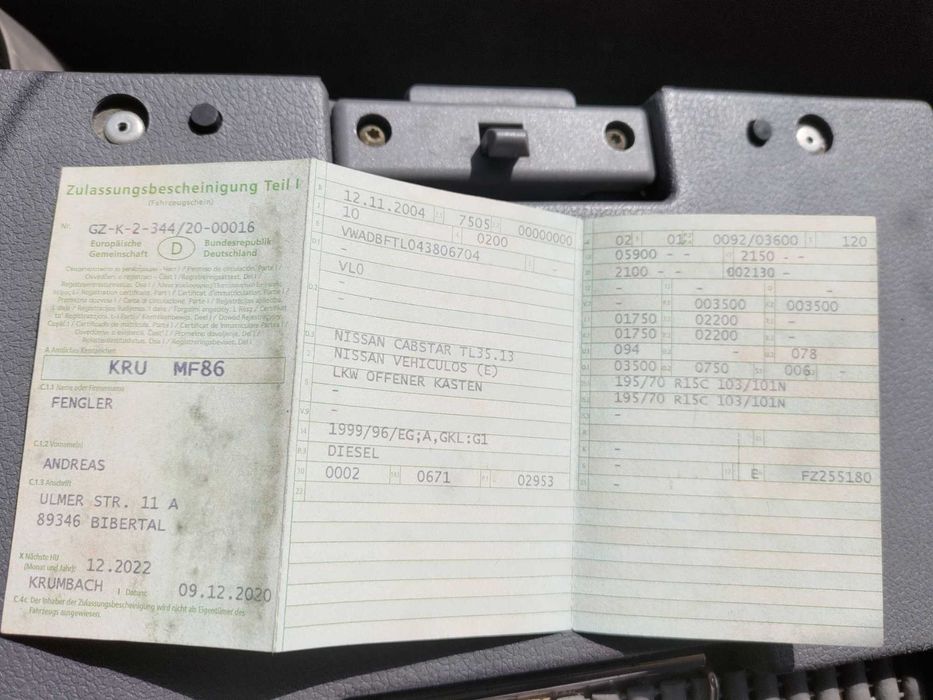 Zulassungsbescheinigung Teil I
(Fahrzeugschein)
Nr. GZ-K-2-344/20-00016
Europäische Gemeinschaft D Bundesrepublik Deutschland
A Amtliches Kennzeichen
KRU MF86
C.1.1 Name oder Firmenname
FENGLER
C.1.2 Vorname(n)
ANDREAS
C.1.3 Anschrift
ULMER STR. 11 A
89346 BIBERTAL
X Nächste HU
(Monat und Jahr): 12.2022
KRUMBACH I Datum: 09.12.2020
C.4c Der Inhaber der Zulassungsbescheinigung wird nicht als Eigentümer des
Fahrzeugs ausgewiesen.
12.11.2004 7505 00000000
10 0200
VWADBFTL043806704 -
-
VL0
-
-
NISSAN CABSTAR TL35.13
NISSAN VEHICULOS (E)
LKW OFFENER KASTEN
-
-
1999/96/EG;A,GKL:G1
DIESEL
0002 0671 02953
02 01 0092/03600 120
05900 - - 2150 - -
2100 - - 002130 - -
- - -
- 003500 003500
01750 02200 -
01750 02200 -
094 - 078
03500 0750 006 -
195/70 R15C 103/101N
195/70 R15C 103/101N
-
-
-
- E FZ255180
-